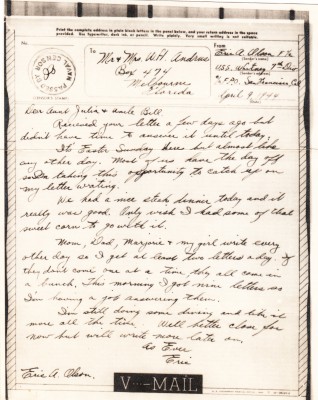 Print the complete address in plain block letters in the panel below, and your return address in the space
provided. Use typewriter, dark ink, or pencil. Write plainly. Very small writing is not suitable.
No.
To
From
Mr & Mrs. A.H. Andreae
Box 474
Melbourne
Florida
Eric A. Olson
U.S.S. Whitney
San Francisco, Cal.
April 9, 1944
PASSED BY
NAVAL CENSOR
Dear Aunt Julia & Uncle Bill
Received your letter a few days ago but
didn't have time to answer it until today.
It's Easter Sunday here but almost like
any other day. Most of us have the day off
so I'm taking this opportunity to catch up on
my letter writing.
We had a nice steak dinner today and it
really was good. Only wish I had some of that
sweet corn to go with it.
Mom, Dad, Marjorie & my girl write every
other day so I get at least two letters a day. If
they don't come one at a time they all come in
a bunch. This morning I got nine letters so
I'm having a job answering them.
I'm still doing some diving and like it
more all the time. Well better close for
now but will write more later on.
As Ever
Eric
Eric A. Olson.
V···—MAIL